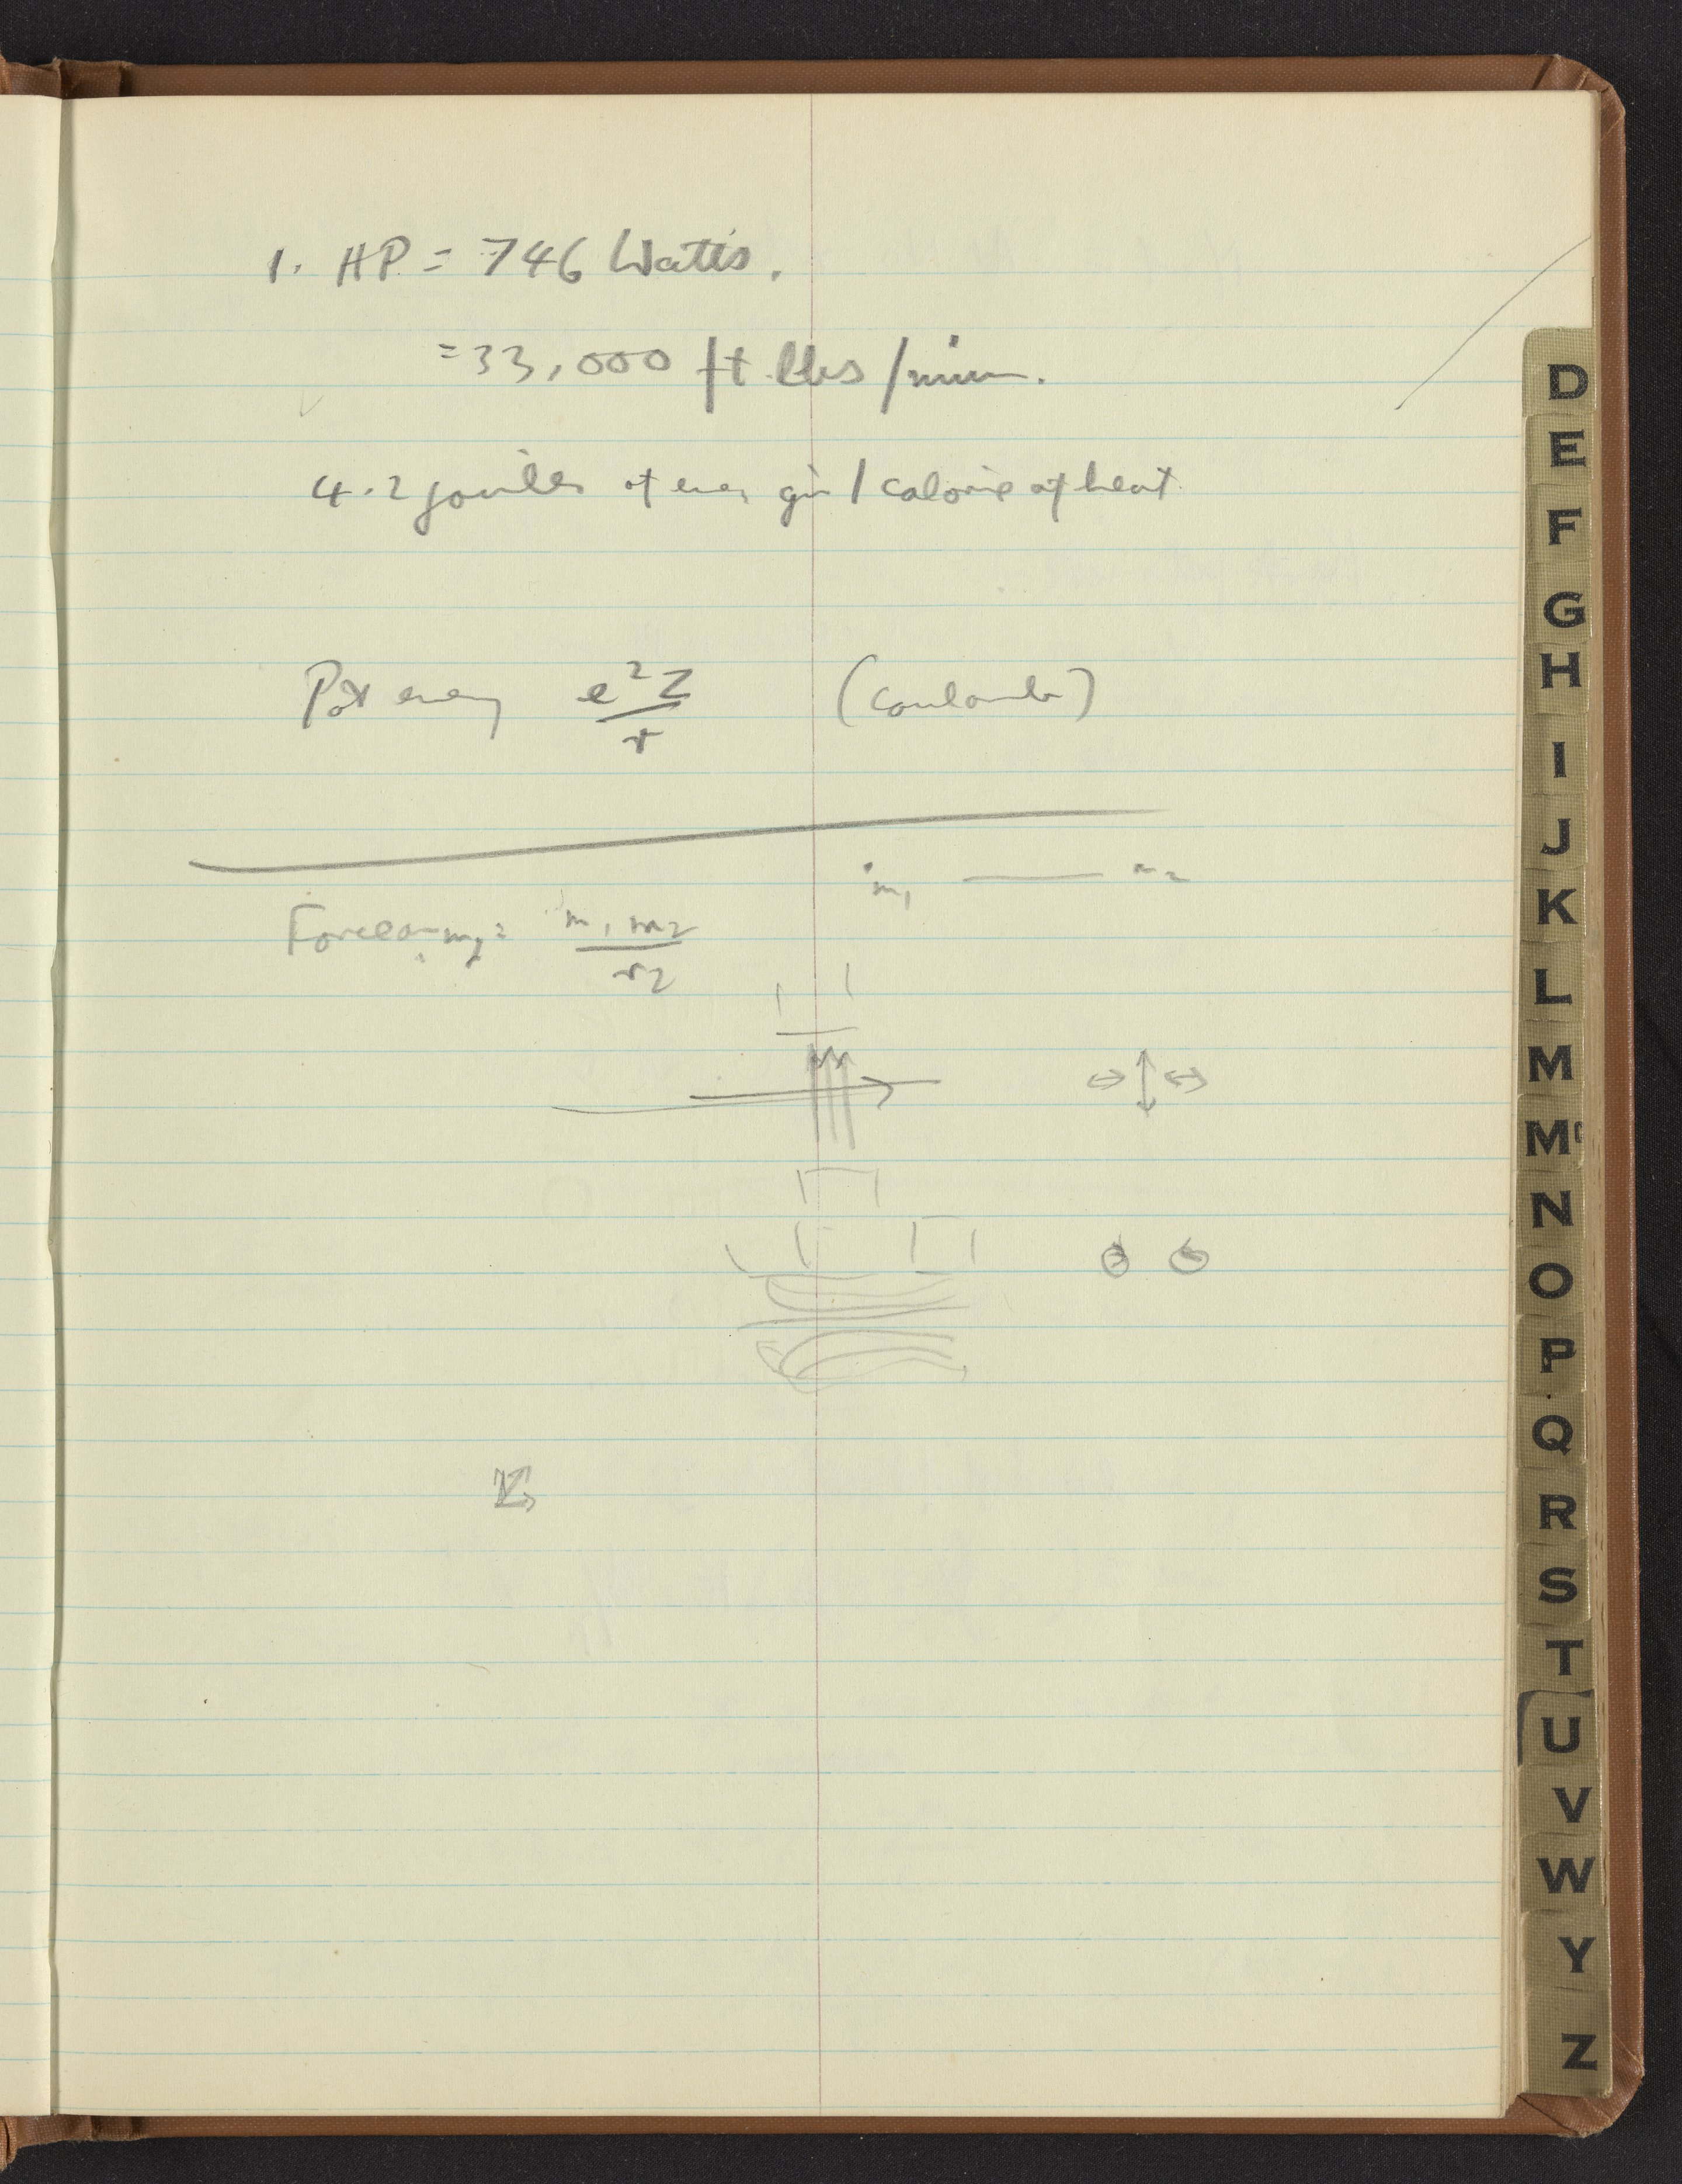 1. HP = 746 Watts.
= 33,000 ft lbs / min.
4.2 joules of ener giv 1 calorie of heat
Pot energy e²Z / r (Coulomb)
m1 m2
Force on m2 = m1 m2 / r2
D
E
F
G
H
I
J
K
L
M
Mc
N
O
P
Q
R
S
T
U
V
W
Y
Z